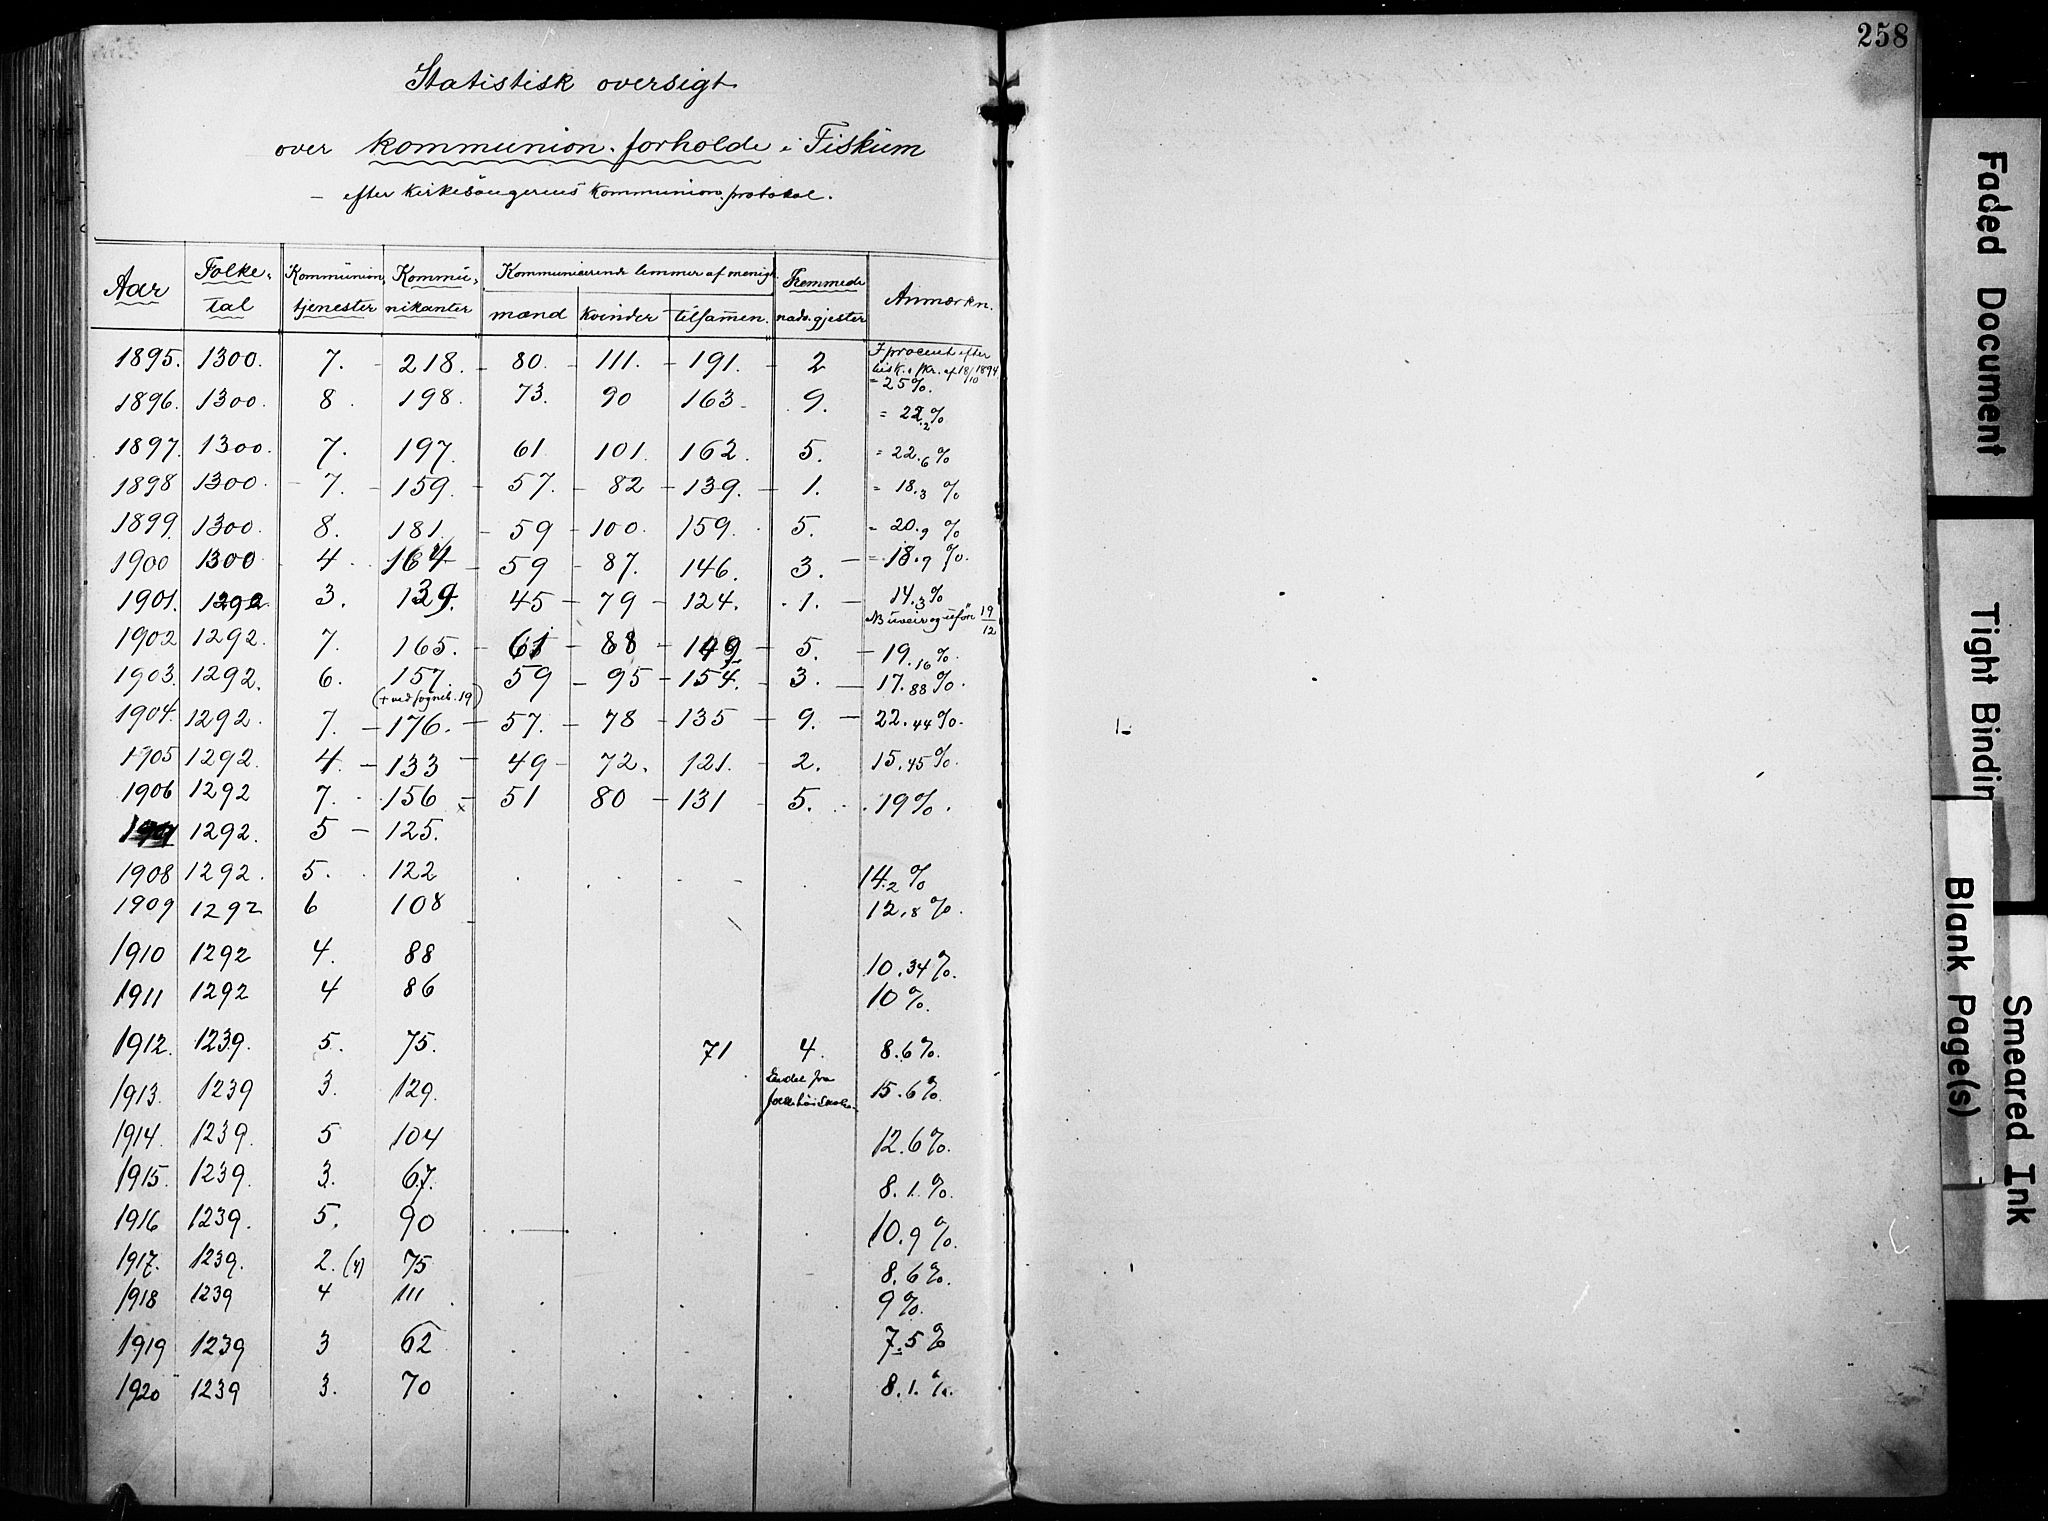 258
Statistisk oversigt
over kommunion-forholde i Fiskum
- efter kirkesangerens kommunion-protokol.
Aar Folke-tal Kommunion-tjenester Kommunikanter Kommunicerende lemmer af menigh. mænd kvinder tilsammen. Fremmede nadv. gjester Anmærkn.
1895. 1300. 7. 218. 80. 111. 191. 2 I procent efter
= 25%.
1896. 1300. 8. 198. 73. 90 163 9. = 22.2%
1897. 1300. 7. 197. 61 101. 162. 5. = 22.6%
1898 1300. 7. 159. 57. 82 139. 1. = 18.3 %
1899. 1300. 8. 181. 59 100. 159. 5. = 20.9 %
1900 1300 4 164 59 87. 146. 3. = 18.9 %.
1901. 1292 3. 139. 45 79 124. 1. 14.3%
NB uveir og uføre 19/12
1902 1292. 7. 165. 61 88 149 5. 19.16%.
1903. 1292. 6. 157 59 95 154. 3. 17.88%.
(+ ved sogneb. 19)
1904. 1292. 7. 176. 57. 78 135 9. 22.44%.
1905 1292. 4. 133 49 72. 121. 2. 15.45%.
1906 1292 7. 156 x 51 80 131 5. 19%.
1907 1292. 5 125.
1908 1292. 5. 122 14.2 %
1909 1292 6 108 12.8%.
1910 1292 4. 88 10.34%.
1911 1292 4 86 10%.
1912. 1239. 5. 75. 71 4. 8.6%.
1913. 1239 3. 129. Endel fra folkehøiskolen. 15.6%.
1914. 1239. 5 104 12.6%.
1915. 1239. 3. 67. 8.1.%.
1916 1239. 5. 90 10.9%.
1917. 1239. 2. (4) 75 8.6%.
1918 1239 4 111 9%.
1919 1239 3 62 7.5%
1920 1239 3. 70 8.1.%.
Faded Document
Tight Bindin
Blank Page(s)
Smeared Ink